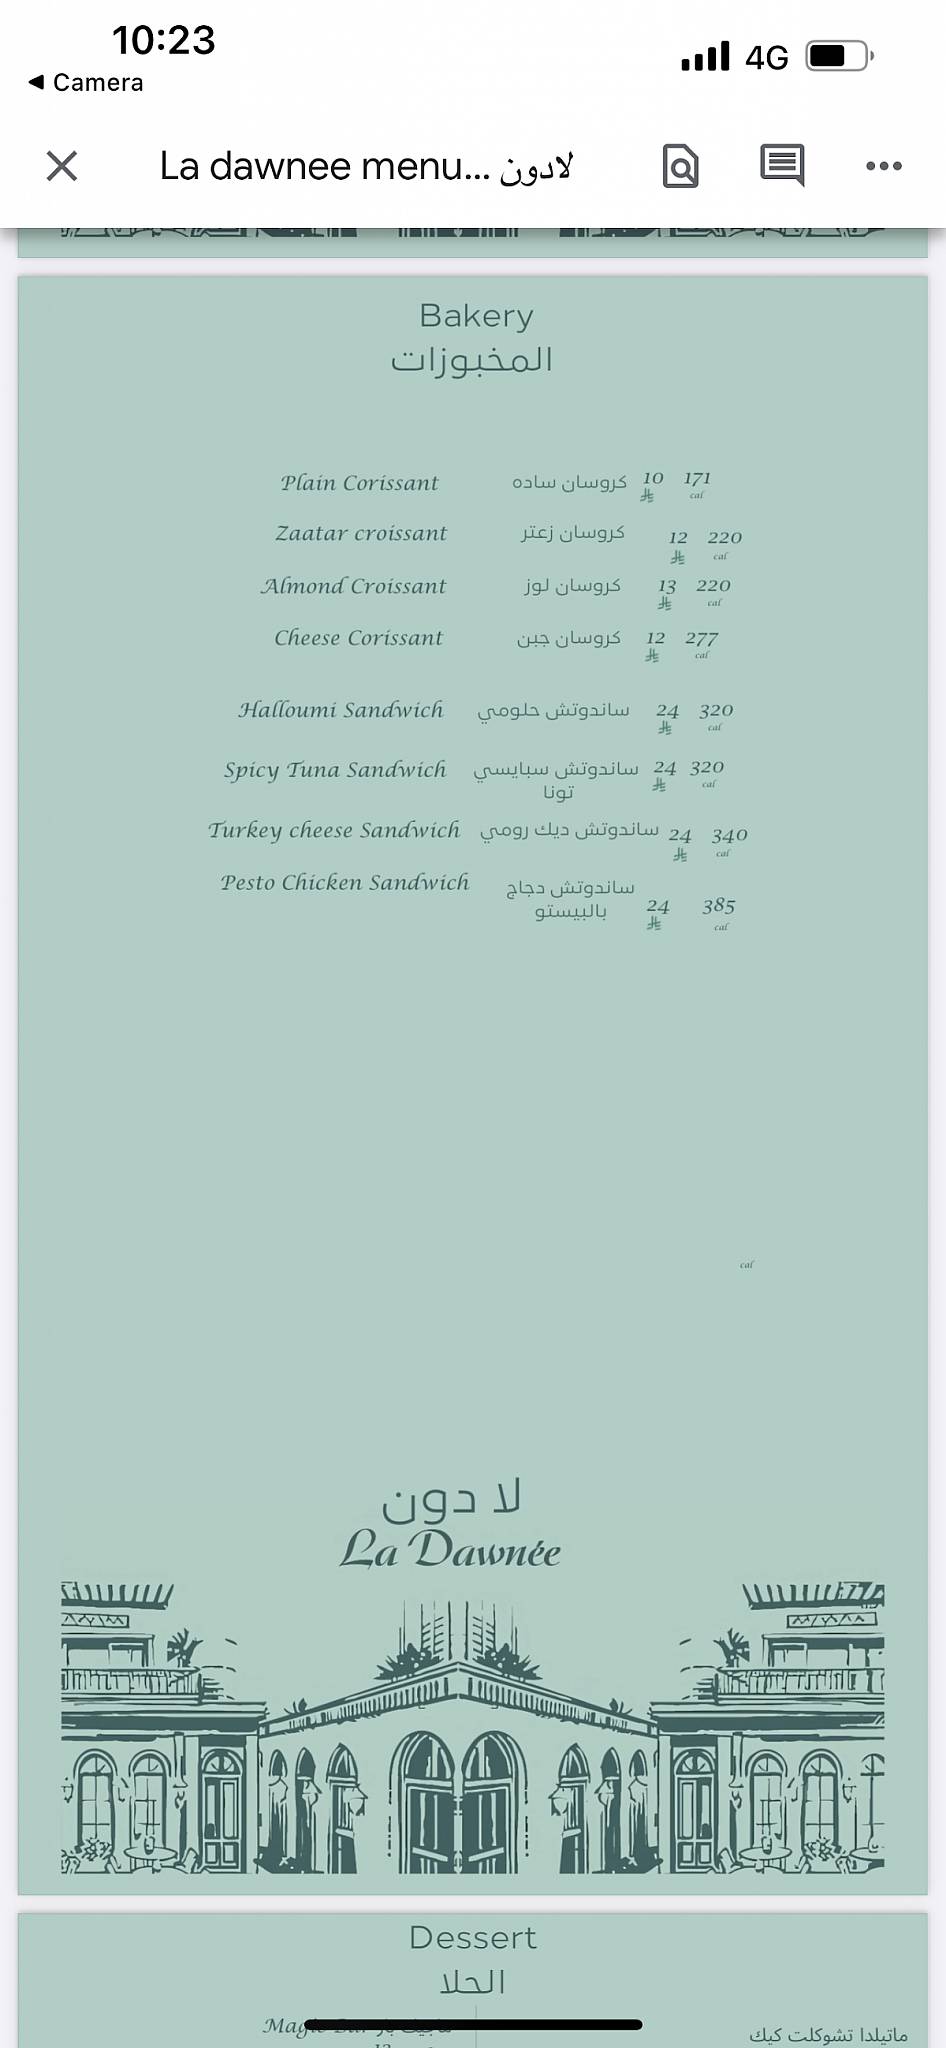 10:23
4G
Camera
La dawnee menu... لادون
Bakery
المخبوزات
Plain Corissant كروسان ساده 10 171
cal
Zaatar croissant كروسان زعتر 12 220
cal
Almond Croissant كروسان لوز 13 220
cal
Cheese Corissant كروسان جبن 12 277
cal
Halloumi Sandwich ساندوتش حلومي 24 320
cal
Spicy Tuna Sandwich ساندوتش سبايسي 24 320
تونا cal
Turkey cheese Sandwich ساندوتش ديك رومي 24 340
cal
Pesto Chicken Sandwich ساندوتش دجاج
بالبيستو 24 385
cal
cal
لا دون
La Dawnée
Dessert
الحلا
ماتيلدا تشوكلت كيك